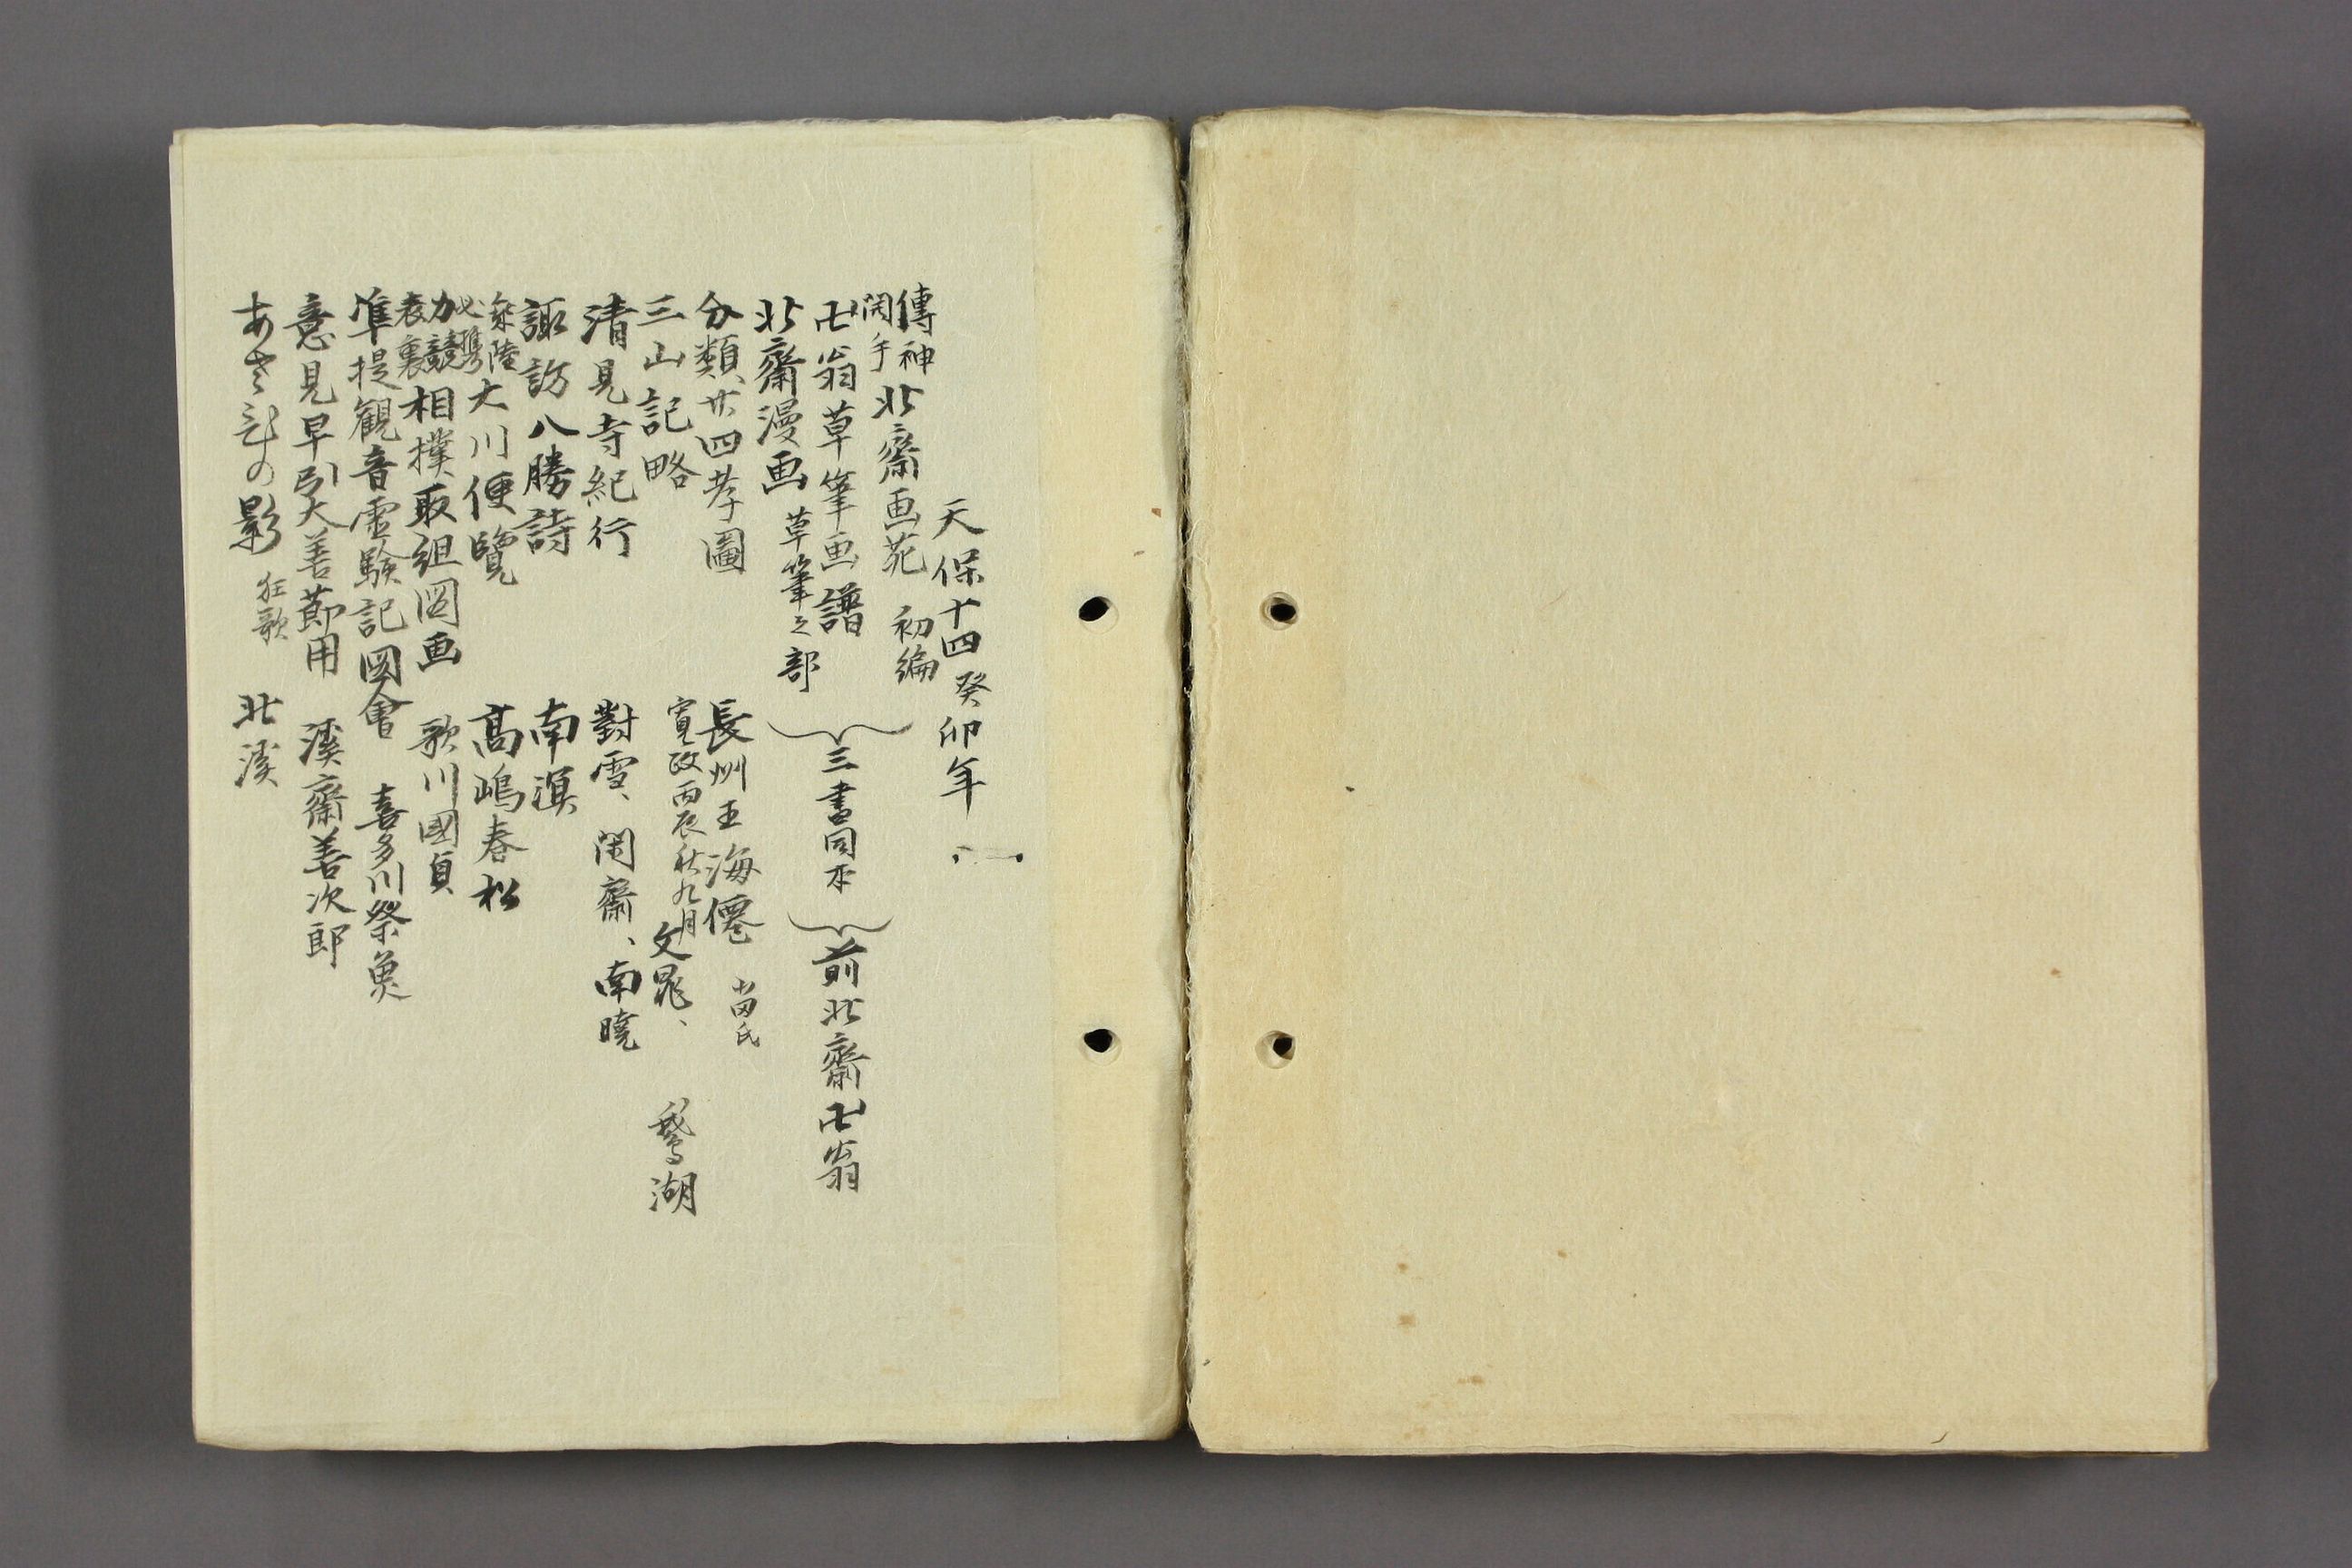 天保十四癸卯年
傳神開手北齋画苑 初編
卍翁草筆画譜
北齋漫画 草筆之部
三書同本
前北齋卍翁
分類廿四孝圖 長州王海僊 苗氏
三山記略 寛政丙辰秋九月 文晁、鵞湖
清見寺紀行 對雪、閑齋、南曉
諏訪八勝詩 南溟
大川便覽 高嶋春松
力競表裏相撲取組図画 歌川國貞
準提観音霊験記図會 喜多川祭魚
意見早引大善節用 溪齋善次郎
の影 狂歌 北溪